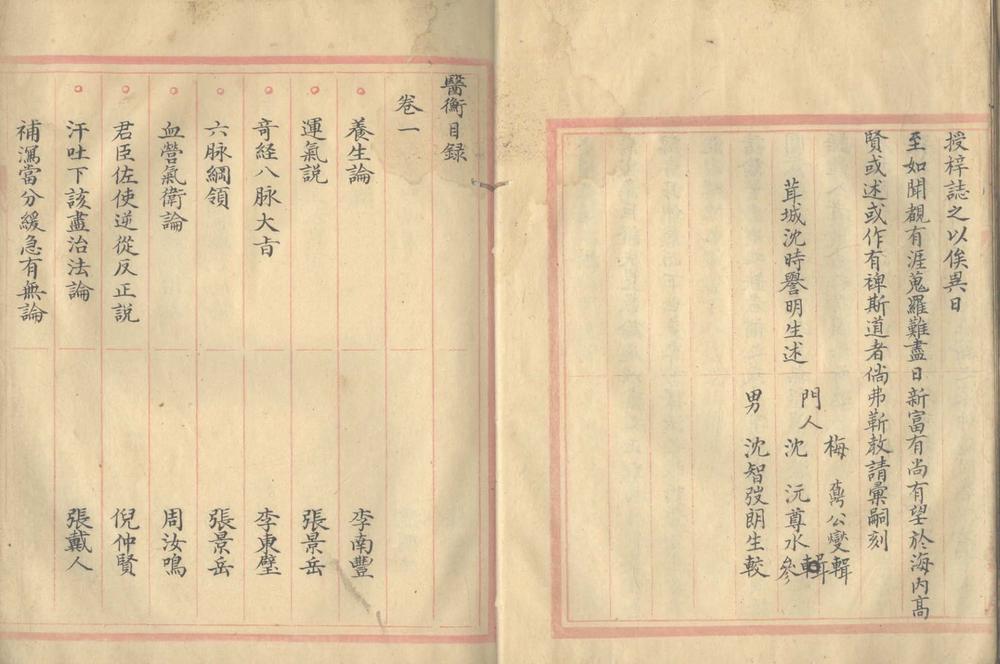 授梓誌之以俟異日
至如聞覩有涯蒐羅難盡日新富有尚有望於海内髙
賢或述或作有裨斯道者倘弗靳敢請彙嗣刻
梅 鼒公燮輯
門人
茸城沈時譽明生述
沈 沅尊水參輯
男 沈智弢朗生較
醫衡目録
卷一
養生論 李南豐
運氣説 張景岳
奇経八脉大旨 李東璧
六脉綱領 張景岳
血營氣衛論 周汝鳴
君臣佐使逆從反正説 倪仲賢
汗吐下該盡治法論 張戴人
補瀉當分緩急有無論